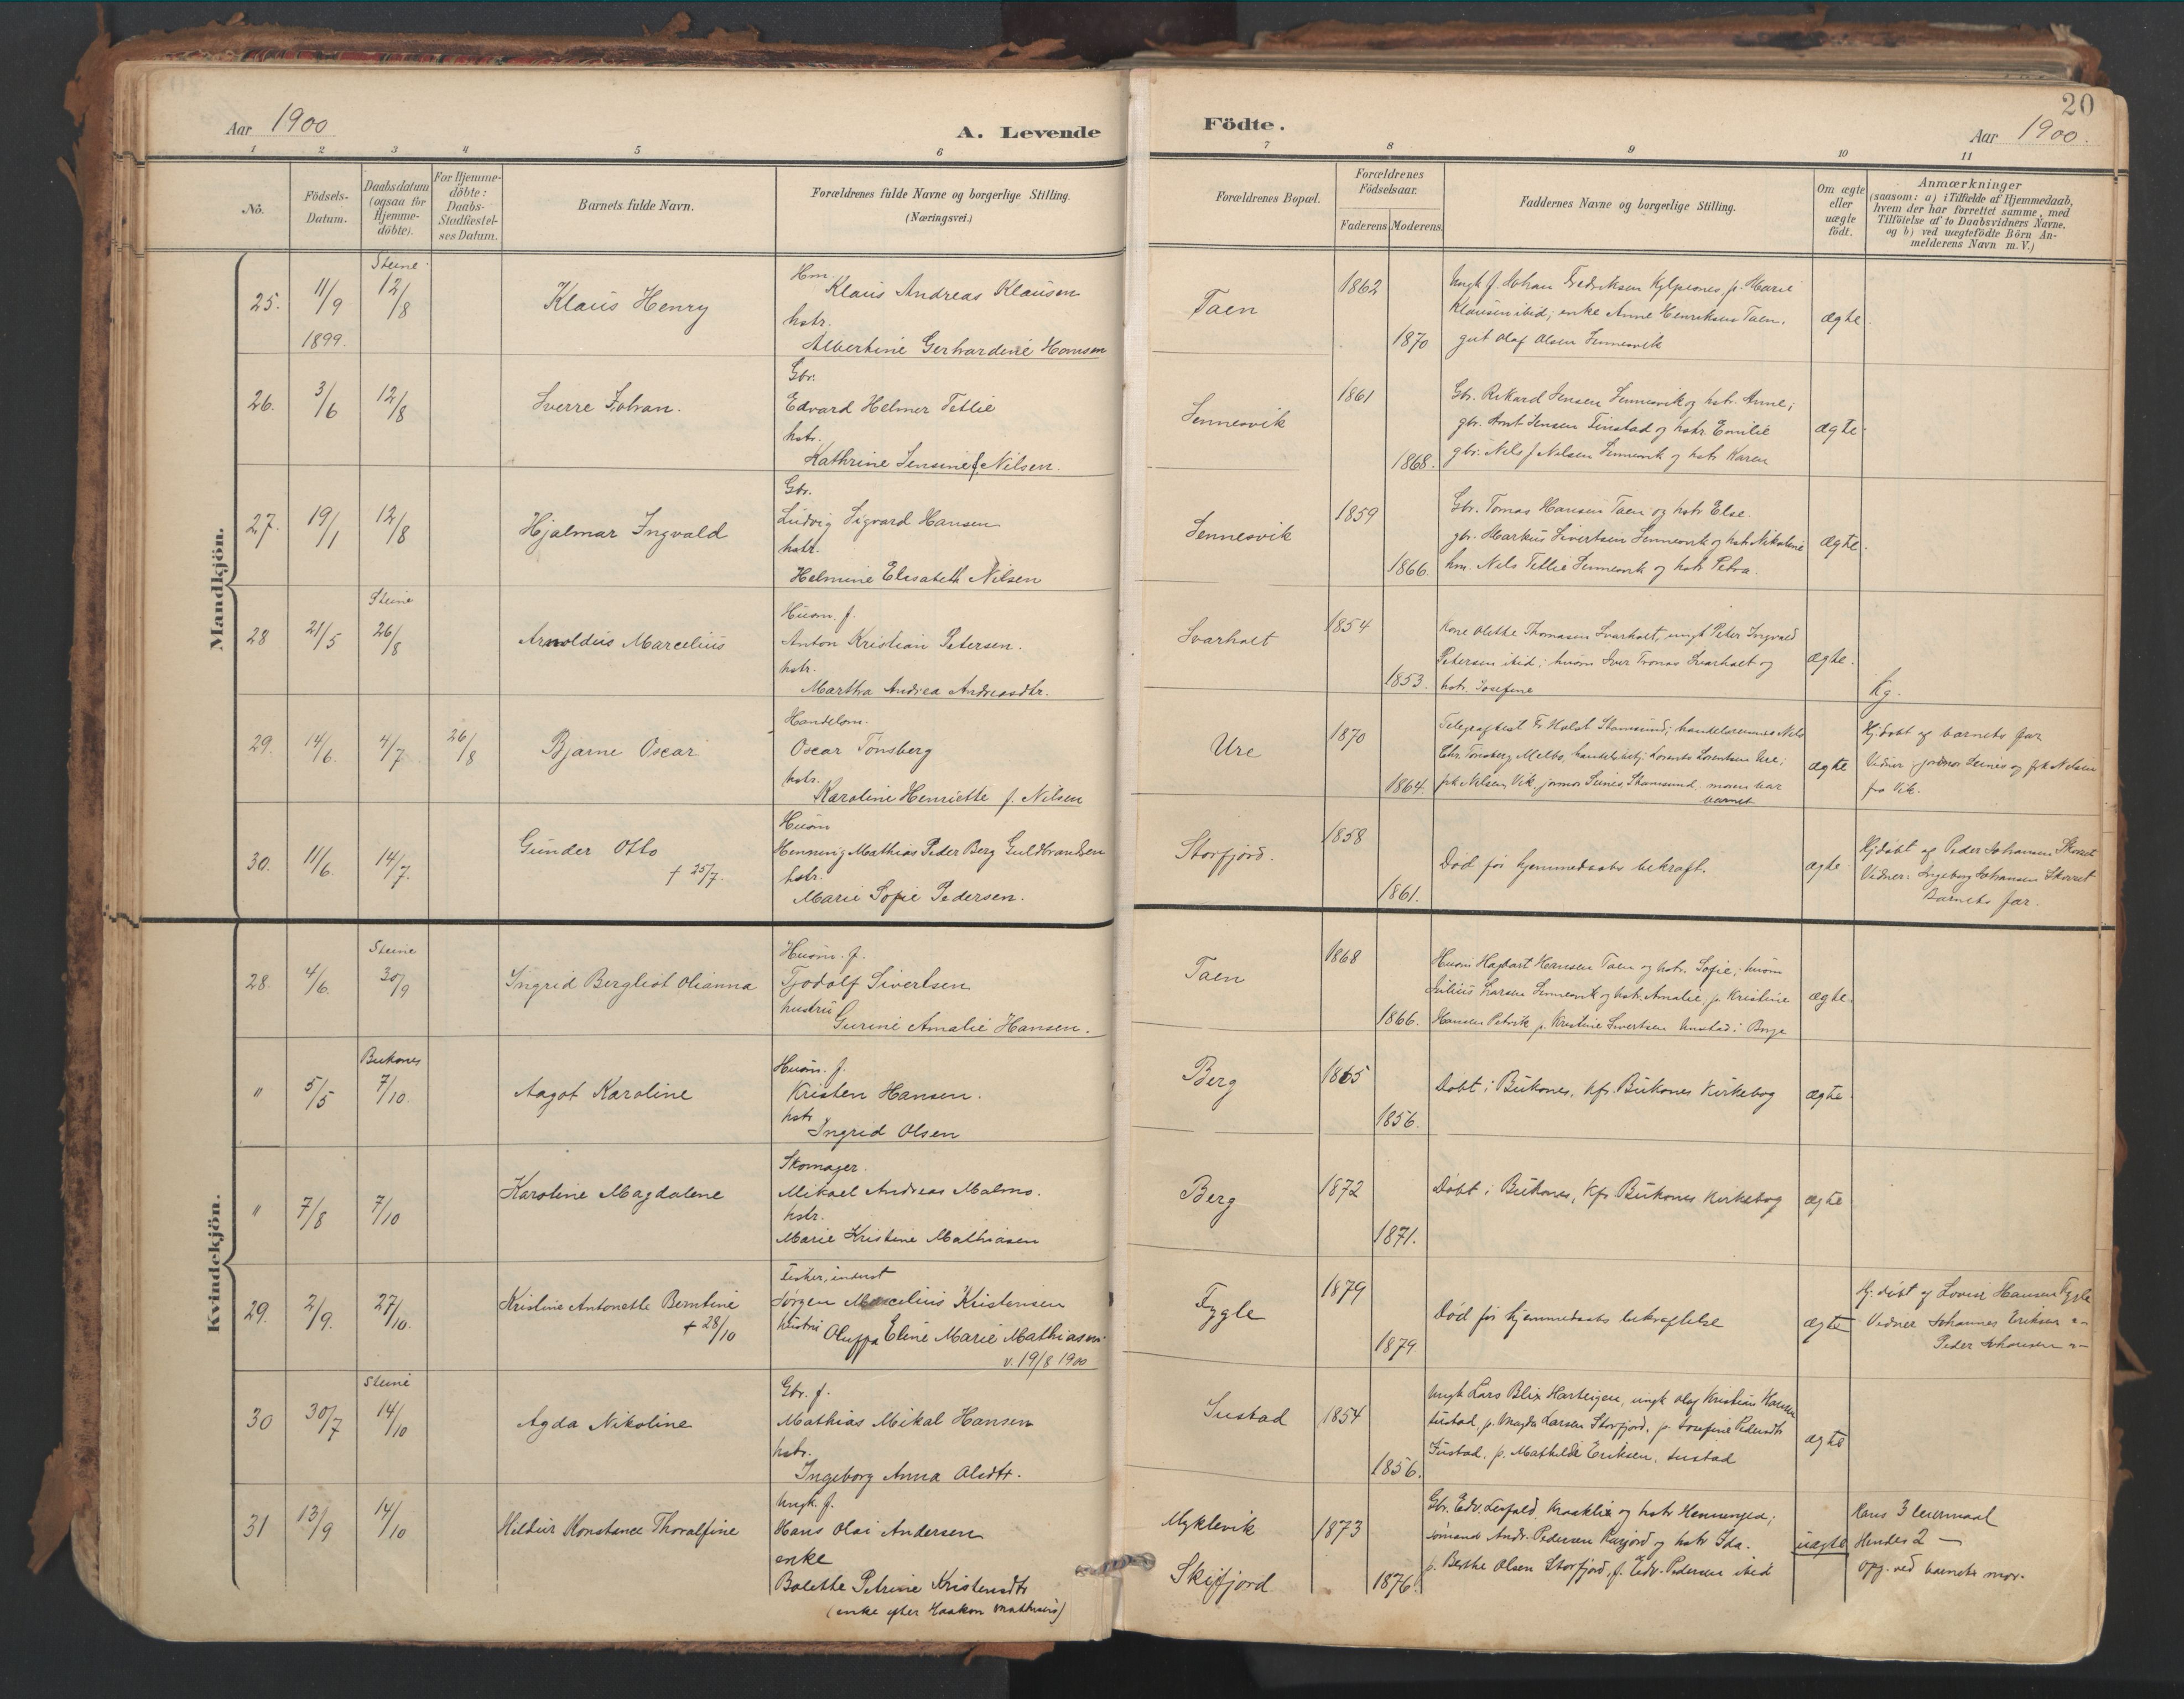 Aar 1900
A. Levende
Födte.
20
Aar 1900.
1 2 3 4 5 6 7 8 9 10 11
No.
Födsels-
Datum.
Daabsdatum
(ogsaa for
Hjemme-
döbte).
For Hjemme-
döbte:
Daabs-
Stadfæstel-
ses Datum.
Barnets fulde Navn.
Forældrenes fulde Navne og borgerlige Stilling.
(Næringsvei.)
Forældrenes Bopæl.
Forældrenes
Födselsaar.
Faderens Moderens
Faddernes Navne og borgerlige Stilling.
Om ægte
eller
uægte
födt.
Anmærkninger
(saasom: a) i Tilfælde af Hjemmedaab,
hvem der har forrettet samme, med
Tilföielse af to Daabsvidners Navne,
og b) ved uægtefödte Börn An-
melderens Navn m. V.)
Mandkjön.
25. 11/9 1899. Steine 12/8 Klaus Henry
Hm. Klaus Andreas Klausen
hstr.
Albertine Gerhardine Hansen
Taen 1862 1870
Ungk f. Johan Fredriksen p. Marie
Klausen ibid; enke Anne Henriksen Taen,
gut Olaf Olsen Sennesvik
ægte
26. 3/6 12/8 Sverre Johan.
Gbr.
Edvard Helmer Tetlie
hstr.
Kathrine Jensine f. Nilsen.
Sennesvik 1861 1868.
Gbr. Rikard Jensen Sennesvik og hstr. Anne;
gbr. Arnt Jensen Finstad og hstr. Emilie
gbr. Nils J Nilsen Sennesvik og hstr Karen
ægte
27. 19/1 12/8 Hjalmar Ingvald
Gbr.
Ludvig Sigvard Hansen
hstr.
Helmine Elisabeth Nilsen
Sennesvik 1859 1866.
Gbr. Tomas Hansen Taen og hstr Else.
gbr. Markus Sivertsen Sennesvik og hstr Nikoline
hm. Nils Tetlie Sennesvik og hstr Petra.
ægte.
28 21/5 Steine 26/8 Arnoldus Marcelius
Husm. f.
Anton Kristian Petersen.
hstr.
Martha Andrea Andreasdtr.
Svarholt 1854 1853.
Kone Olethe Thomasen Svarholt, ungk Peter Ingvald
Petersen ibid; husm Iver Tronas Svarholt og
hstr. Josefine
ægte.
29. 14/6. 4/7. 26/8 Bjarne Oscar
Handelsm.
Oscar Tönsberg
hstr.
Karoline Henriette f. Nilsen
Ure 1870 1864.
Telegrafist Fr Holst Stamsund; handelsmand Nils
Chr. Tønsberg Melbo, handelsbetj. Lorents Lorentsen Ure;
frk Nilsen, Vik, jormor Seines, Stamsund, moren bar
barnet
ægte
Kg.
Hj.døbt af barnets far
Vidner: jordmor Seines og frk Nilsen
fra Vik.
30. 11/6. 14/7. Gunder Otto
† 25/7.
Husm
Henning Mathias Peder Berg Guldbrandsen
hstr.
Marie Sofie Pedersen.
Storfjord. 1858 1861.
Död før hjemmedaabs bekræft.
ægte
Hjdøbt af Peder Johansen
Vidner: Ingeborg Johansen
Barnets far.
Kvindekjön.
28. 4/6. Steine 30/9 Ingrid Bergliot Olianna
Husm. f.
Tjodolf Sivertsen
hustru
Gurine Amalie Hansen.
Taen 1868 1866.
Husm Hagbart Hansen Taen og hstr. Sofie; husm
Julius Larsen Sennesvik og hstr. Amalie, p. Kristine
Hansen Petvik p. Kristine Sivertsen Unstad i Borge
ægte.
" 5/5 Buksnes 7/10. Aagot Karoline
Husm. f.
Kristen Hansen.
hstr.
Ingrid Olsen
Berg 1865 1856.
Døbt i Buksnes, kfr. Buksnes Kirkebog
ægte
" 7/8 7/10 Karoline Magdalene
Skomager.
Mikael Andreas Malmo.
hstr.
Marie Kristine Mathiasen
Berg 1872 1871.
Døbt i Buksnes, kfr Buksnes Kirkebog
ægte
29. 2/9. 27/10. Kristine Antonette Berntine
† 28/10
Fisker, inderst
Jørgen Marcelius Kristensen
hustru Oluffa Eline Marie Mathiasen
v. 19/8 1900
Fygle 1879 1879
Död før hjemmedaabs bekræftelse
ægte
Hj. døbt af Lovise Hansen Fygle
Vidner Johannes Eriksen
Peder Johansen
30 30/7 Steine 14/10 Agda Nikoline
Gbr. f.
Mathias Mikal Hansen
hstr.
Ingeborg Anna Olsdtr.
Sustad 1854 1856.
Ungk Lars Blix Hartvigsen, ungk Olaf Kristian Hansen
Sustad, p. Magda Larsen Storfjord, p. Josefine Pedersdtr
Sustad, p. Mathilde Eriksen, Sustad
ægte
31 13/9 14/10 Hildur Konstance Thoralfine
Ungk. f.
Hans Olai Andersen
enke
Bolette Petrine Kristensdtr
(enke efter Haakon Mathisen)
Myklevik
Skifjord
1873 1876.
Gbr. Edv. Leifald, Kraaklia og hstr Henningea;
sömand Andr. Pedersen og hstr Ida.
p. Berthe Olsen Storfjord, f. Edv. Pedersen ibid
uægte
Hans 3 leiermaal
Hendes 2 —
Opg. ved barnets mor.